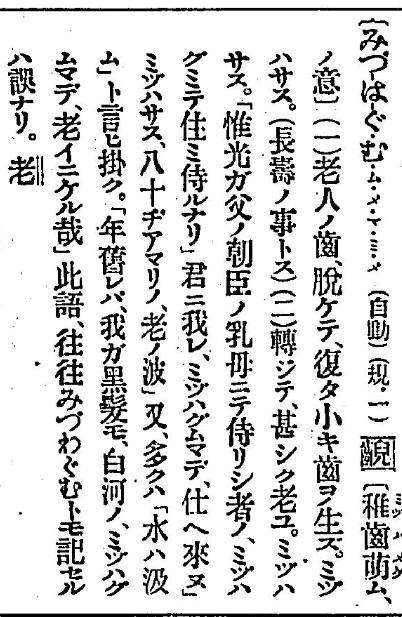 〔みづはぐ・む・ム・メ・マ・ミ・メ(自動)(規・一)齯〔稚齒萌ム、
ノ意〕(一)老人ノ齒、脫ケテ、復タ小キ齒ヲ生ズ。ミヅ
ハサス。(長壽ノ事トス)(二)轉ジテ、甚シク老ユ。ミヅハ
サス。「惟光ガ父ノ朝臣ノ乳母ニテ侍リシ者ノ、ミヅハ
グミテ住ミ侍ルナリ」君ニ我レ、ミヅハグムマデ、仕ヘ來ヌ」
ミヅハサス、八十ヂアマリノ、老ノ波」又、多クハ「水ハ汲
ム」ト言ヒ掛ク。「年舊レバ、我ガ黑髮モ、白河ノ、ミヅハグ
ムマデ、老イニケル哉」此語、往往みづわぐむトモ記セル
ハ誤ナリ。老